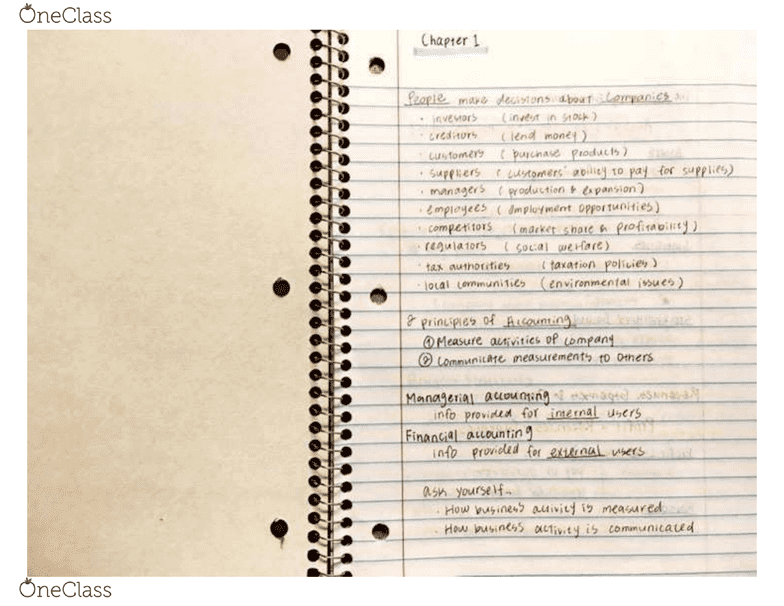 OneClass
Chapter 1
People make decisions about companies
· investors (invest in stock)
· creditors (lend money)
· customers (purchase products)
· suppliers (customers' ability to pay for supplies)
· managers (production & expansion)
· employees (employment opportunities)
· competitors (market share & profitability)
· regulators (social welfare)
· tax authorities (taxation policies)
· local communities (environmental issues)
2 principles of Accounting
① Measure activities of company
② Communicate measurements to others
Managerial accounting
info provided for internal users
Financial accounting
info provided for external users
ask yourself..
· How business activity is measured
· How business activity is communicated
OneClass